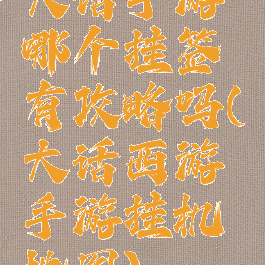 大话手游
哪个挂签
有攻略吗(
大话西游
手游挂机
地图)